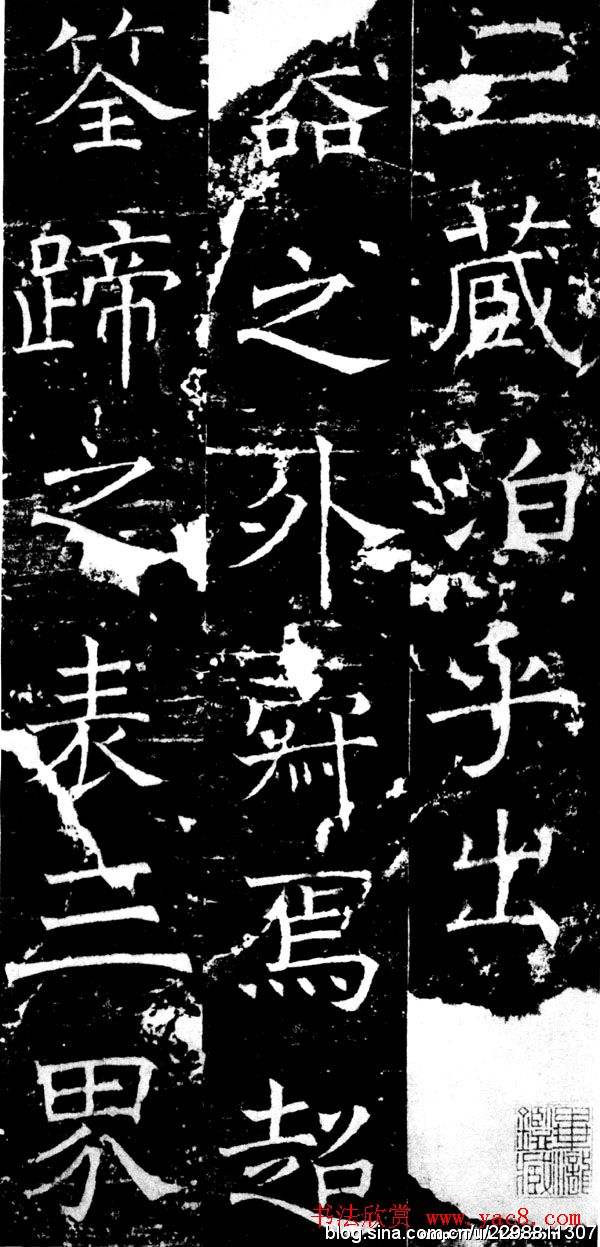 三藏泊乎出
器之外焉超
筌蹄之表三界
畢瀧
鑑藏
书法欣赏 www.yac8.com
blog.sina.com.cn/u/2298811307